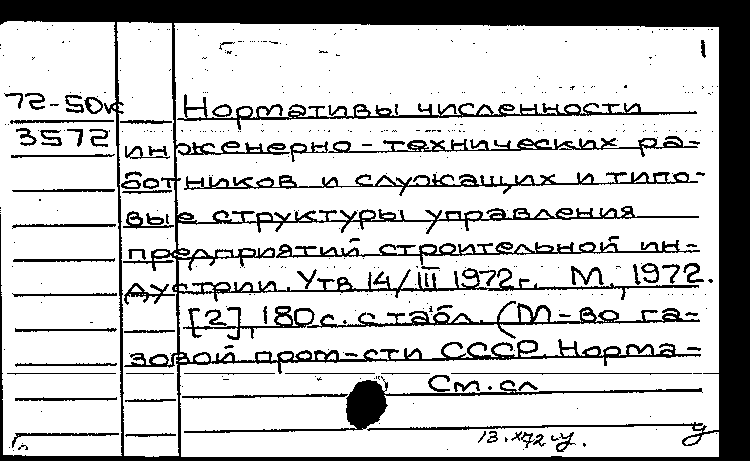 1
72-50к Нормативы численности
3572 инженерно-технических ра=
ботников и служащих и типо-
вые структуры управления
предприятий строительной ин=
дустрии. Утв 14/III 1972г. М., 1972.
[2], 180 с. с табл. (М-во га=
зовой пром-сти СССР. Норма=
См. сл